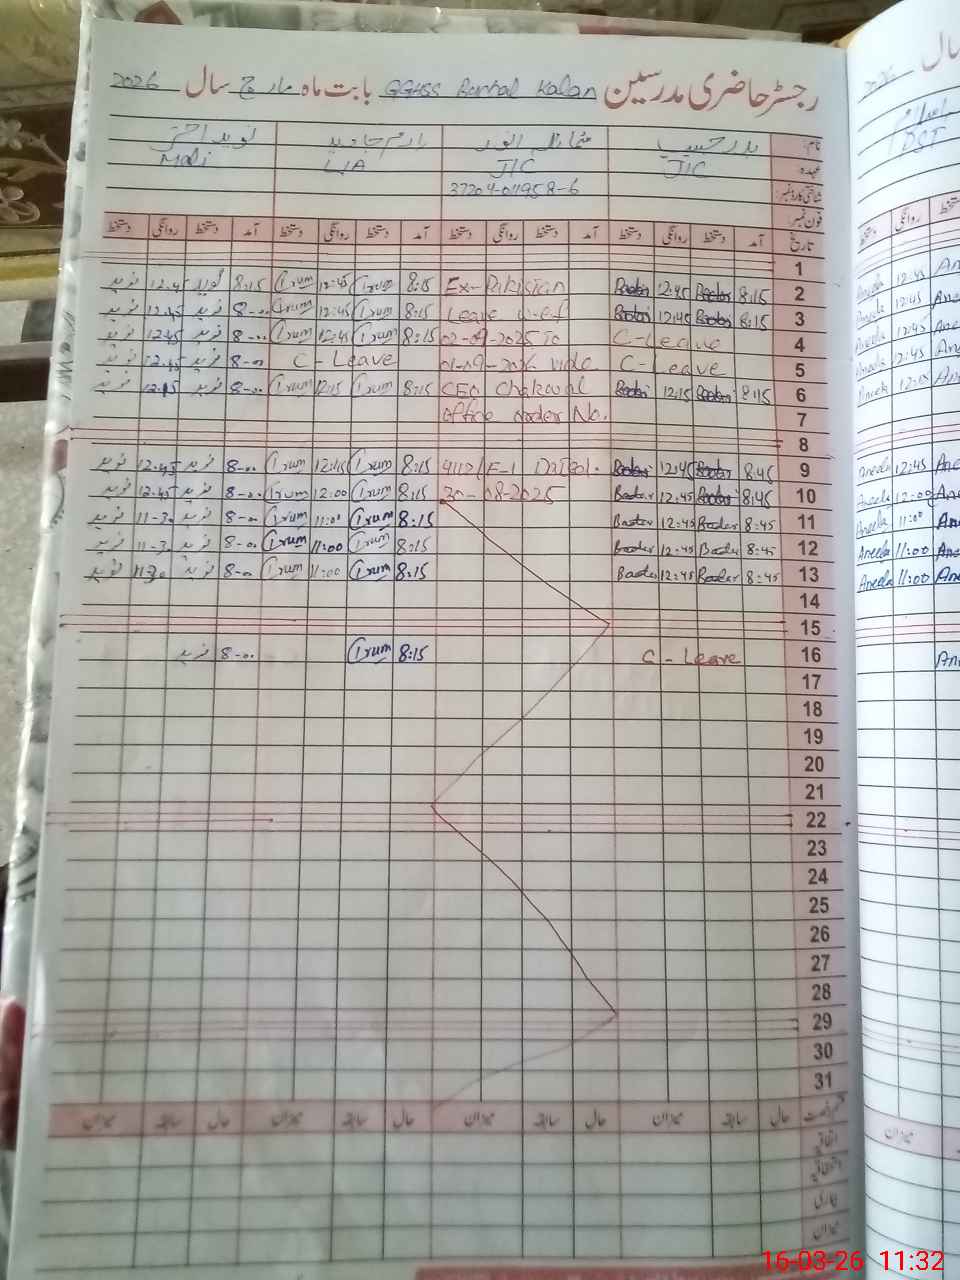 رجسٹر حاضری مدرسین GGHSS Banhal Kalan بابت ماہ مارچ سال 2026
نام: بدر حبیب شمائلہ انور ارم جاوید نوید اختر
عہدہ JIC JIC L/A Mali
شناختی کارڈ نمبر: 37204-011958-6
فون نمبر:
تاریخ آمد دستخط روانگی دستخط آمد دستخط روانگی دستخط آمد دستخط روانگی دستخط آمد دستخط روانگی دستخط
1
2 8:15 12:45 Ex-Pakistan 8:15 Irum 12:45 Irum 8:15 نوید 12:45 نوید
3 8:15 12:45 Leave w.e.f 8:15 Irum 12:45 Irum 8-00 نوید 12:45 نوید
4 C-Leave 02-09-2025 To 8:15 Irum 12:45 Irum 8-00 نوید 12:45 نوید
5 C-Leave 01-09-2026 vide C-Leave 8-00 نوید 12:45 نوید
6 8:15 12:15 CEO Chakwal 8:15 Irum 12:15 Irum 8-00 نوید 12:15 نوید
7 office order No.
8
9 8:45 12:45 4112/E-I Dated. 8:15 Irum 12:45 Irum 8-00 نوید 12:45 نوید
10 8:45 12:45 30-08-2025 8:15 Irum 12:00 Irum 8-00 نوید 12:45 نوید
11 8:45 Bader 12:45 Bader 8:15 Irum 11:00 Irum 8-00 نوید 11-30 نوید
12 8:45 Bader 12:45 Bader 8:15 Irum 11:00 Irum 8-00 نوید 11-30 نوید
13 8:45 Bader 12:45 Bader 8:15 Irum 11:00 Irum 8-00 نوید 11-30 نوید
14
15
16 C-Leave 8:15 Irum 8-00 نوید
17
18
19
20
21
22
23
24
25
26
27
28
29
30
31
قسم رخصت حال سابقہ میزان حال سابقہ میزان حال سابقہ میزان حال سابقہ میزان
اتفاقیہ
استحقاقیہ
بیماری
میزان
سال 2026
DCT
روانگی
Aneela 12:45
Aneela 12:45
Aneela 12:45
Aneela 12:45
Aneela 12:15
Aneela 12:45
Aneela 12:00
Aneela 11:00
Aneela 11:00
Aneela 11:00
میزان
16-03-26 11:32